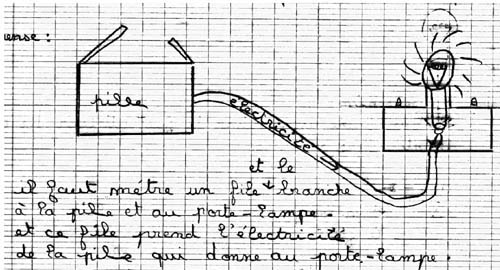 ense :
pille
électricité
et le
il faut métre un file branche
à la pile et au porte-lampe.
et ce file prend l'électricité
de la pile qui donne au porte-lampe.